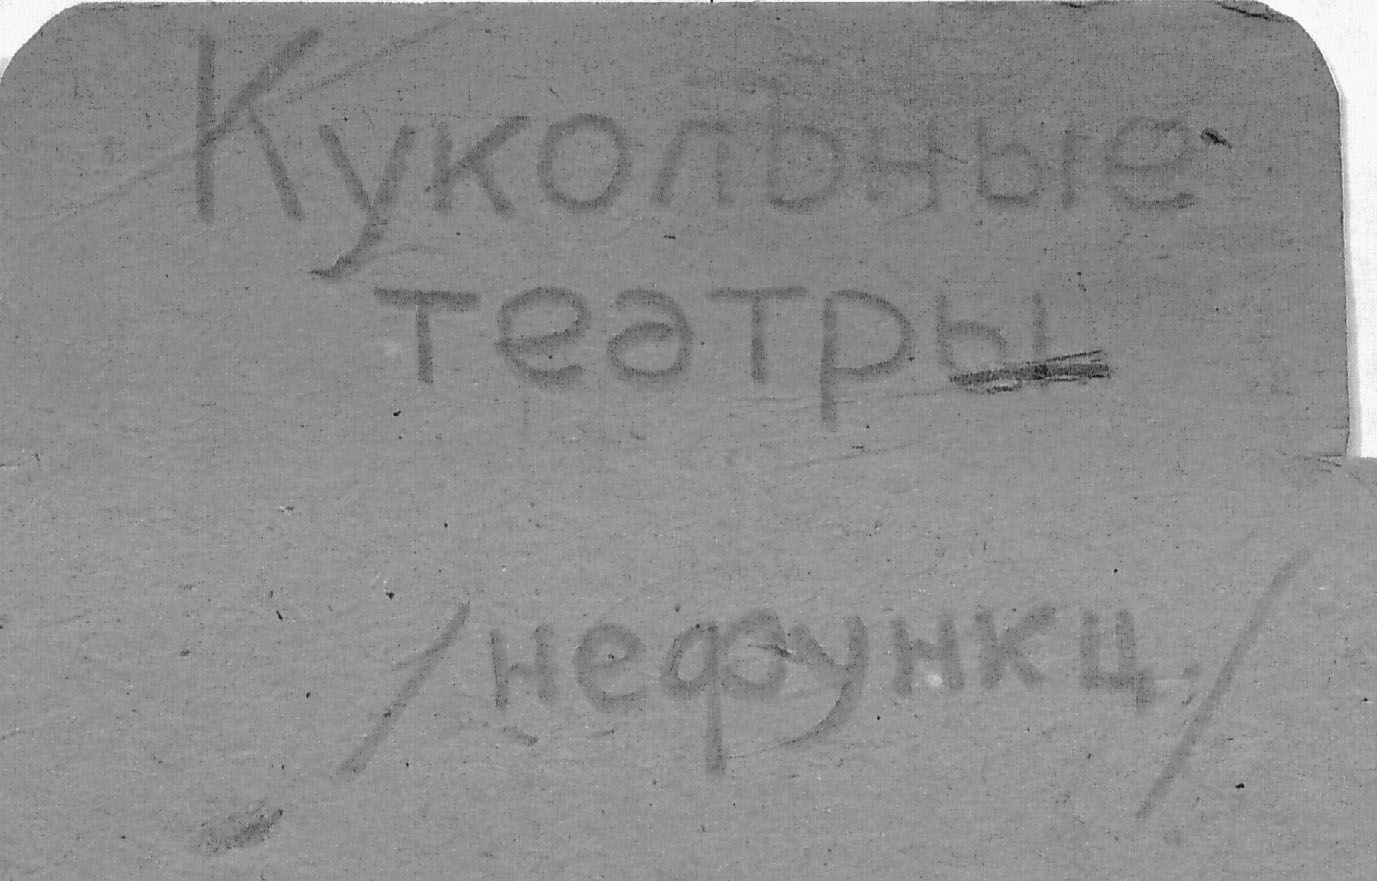 Кукольные
театры
/нефункц./